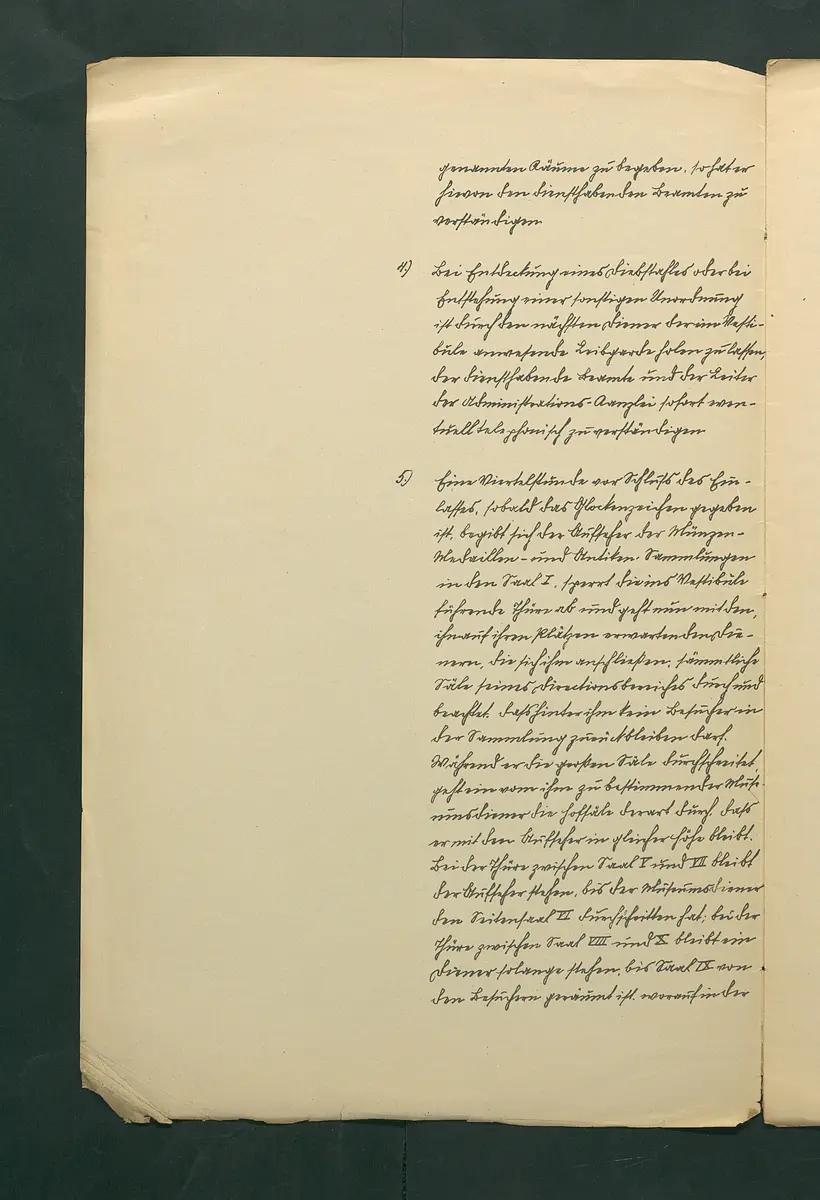 genannten Räume zu begeben, so hat er
hievon den diensthabenden Beamten zu
verständigen.
4.) Bei Entdeckung eines Diebstahles oder bei
Entstehung einer sonstigen Unordnung
ist durch den nächsten Diener der im Vesti-
bule anwesende Leibgarde holen zu lassen,
der diensthabende Beamte und der Leiter
der Administrations-Kanzlei sofort even-
tuell telephonisch zu verständigen.
5.) Eine Viertelstunde vor Schluss des Ein-
lasses, sobald das Glockenzeichen gegeben
ist, begibt sich der Aufseher der Münzen-
Medaillen- und Antiken-Sammlungen
in den Saal I, sperrt die ins Vestibule
führende Thüre ab und geht nun mit den,
ihn auf ihren Plätzen erwartenden Die-
nern, die sich ihm anschließen, sämmtliche
Säle seines Directionsbereiches durch und
beachtet, dass hinter ihm kein Besucher in
der Sammlung zurückbleiben darf.
Während er die großen Säle durchschreitet
geht ein vom ihm zu bestimmender Muse-
umsdiener die Hofsäle derart durch, dass
er mit den Aufseher in gleicher Höhe bleibt.
Bei der Thüre zwischen Saal V und VII bleibt
der Aufseher stehen, bis der Museumsdiener
den Seitensaal VI durchschritten hat; bei der
Thüre zwischen Saal VIII und X bleibt ein
Diener solange stehen, bis Saal IX von
den Besuchern geräumt ist, worauf in der